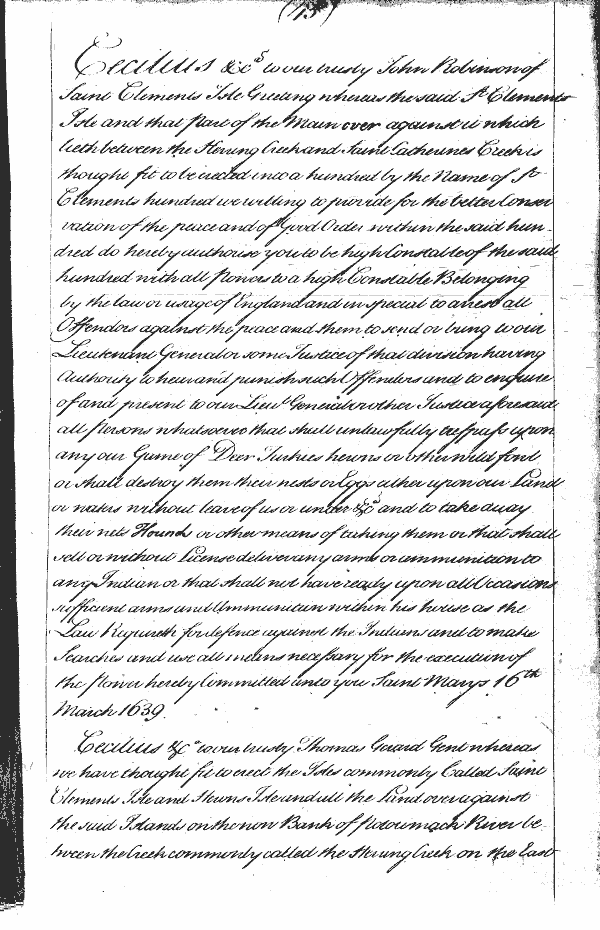 (45)
Cecilius &cs to our trusty John Robinson of
Saint Clements Isle Greeting whereas the said St Clements
Isle and that part of the Main over against it which
lieth between the Herring Creek and Saint Catherines Creek is
thought fit to be erected into a hundred by the Name of St
Clements hundred we willing to provide for the better Conser
vation of the peace and of Good Order within the said hun-
dred do hereby authorise you to be high Constable of the said
hundred with all powers to a high Constable Belonging
by the law or usage of England and in special to arrest all
Offendors against the peace and them to send or bring to our
Lieutenant General or some Justice of that division having
Authority to hear and punish such Offenders and to enquire
of and present to our Lieut General or other Justice aforesaid
all persons whatsoever that shall unlawfully trespass upon
any our Game of Deer Turkies herons or other wild fowl
or shall destroy them their nests or Eggs either upon our Land
or waters without leave of us or under &cs and to take away
their nets Hounds or other means of taking them or that shall
sell or without License deliver any arms or ammunition to
any Indian or that shall not have ready upon all Occasions
sufficient arms and Ammunition within his house as the
Law Requireth for defence against the Indians and to make
Searches and use all means necessary for the execution of
the power hereby Committed unto you Saint Marys 16th
March 1639
Cecilius &c to our trusty Thomas Gerard Gent whereas
we have thought fit to erect the Isles commonly Called Saint
Clements Isle and Herns Isle and all the Land over against
the said Islands on the norn Bank of Potowmack River be
tween the Creek commonly called the Herring Creek on the East